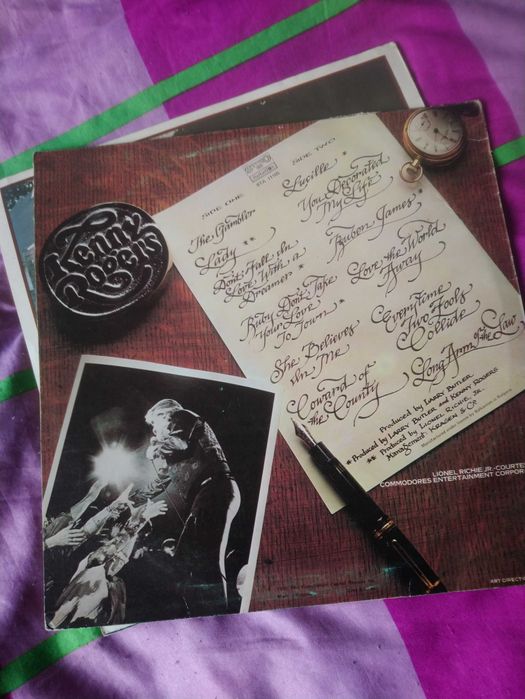 Kenny
Rogers
SIDE ONE
The Gambler
Lady **
Don't Fall In
Love With a
Dreamer *
Ruby Don't Take
Your Love
To Town *
She Believes
In Me
Coward of
the County
SIDE TWO
Lucille *
You Decorated
My Life
Reuben James *
Love the World
Away
Everytime
Two Fools
Collide
Long Arm of the Law
Produced by LARRY BUTLER
* Produced by LARRY BUTLER and KENNY ROGERS
** Produced by LIONEL RICHIE, JR.
Management: KRAGEN & CO.
LIONEL RICHIE JR.-COURTE
COMMODORES ENTERTAINMENT CORPOR
ART DIRECTI